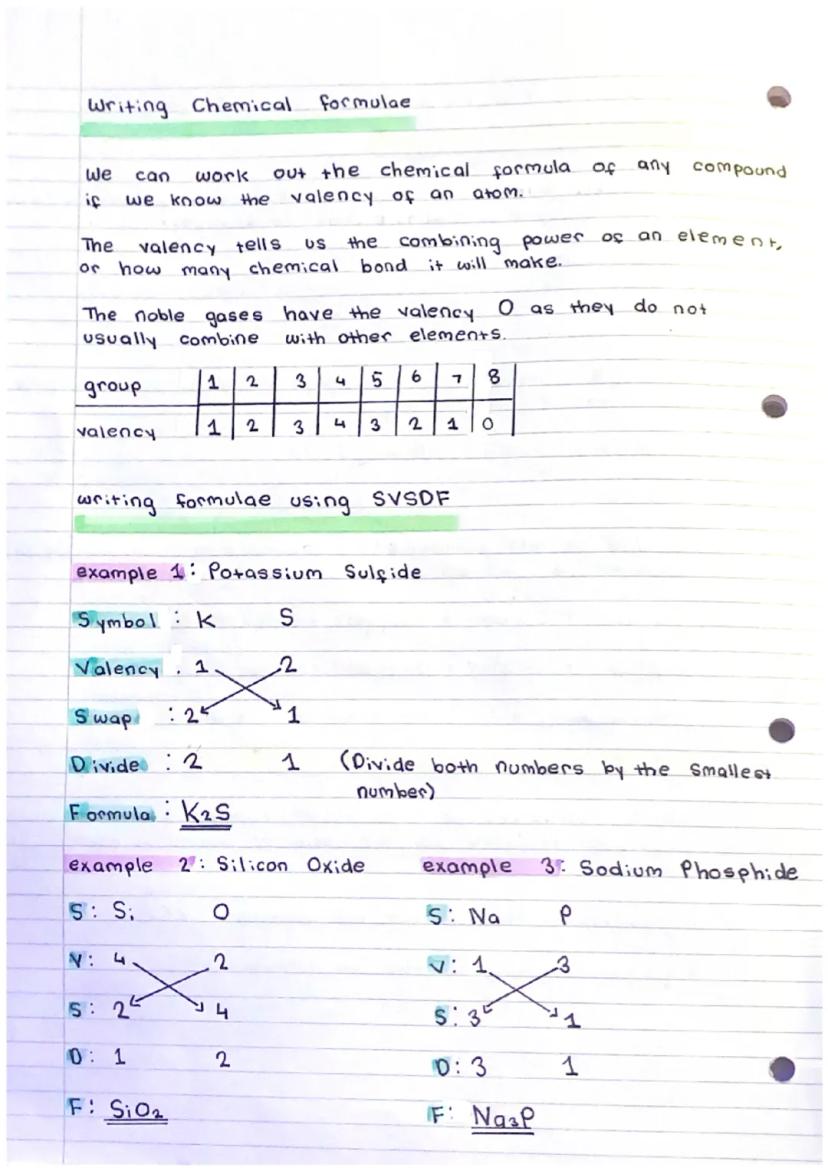 Writing Chemical formulae
We can work out the chemical formula of any compound
if we know the valency of an atom.
The valency tells us the combining power of an element,
or how many chemical bond it will make.
The noble gases have the valency 0 as they do not
usually combine with other elements.
group 1 2 3 4 5 6 7 8
valency 1 2 3 4 3 2 1 0
writing formulae using SVSDF
example 1: Potassium Sulfide
Symbol : K S
Valency : 1 2
Swap : 2 1
Divide : 2 1 (Divide both numbers by the smallest
number)
Formula : K2S
example 2: Silicon Oxide
S: Si O
V: 4 2
S: 2 4
D: 1 2
F: SiO2
example 3: Sodium Phosphide
S: Na P
V: 1 3
S: 3 1
D: 3 1
F: Na3P